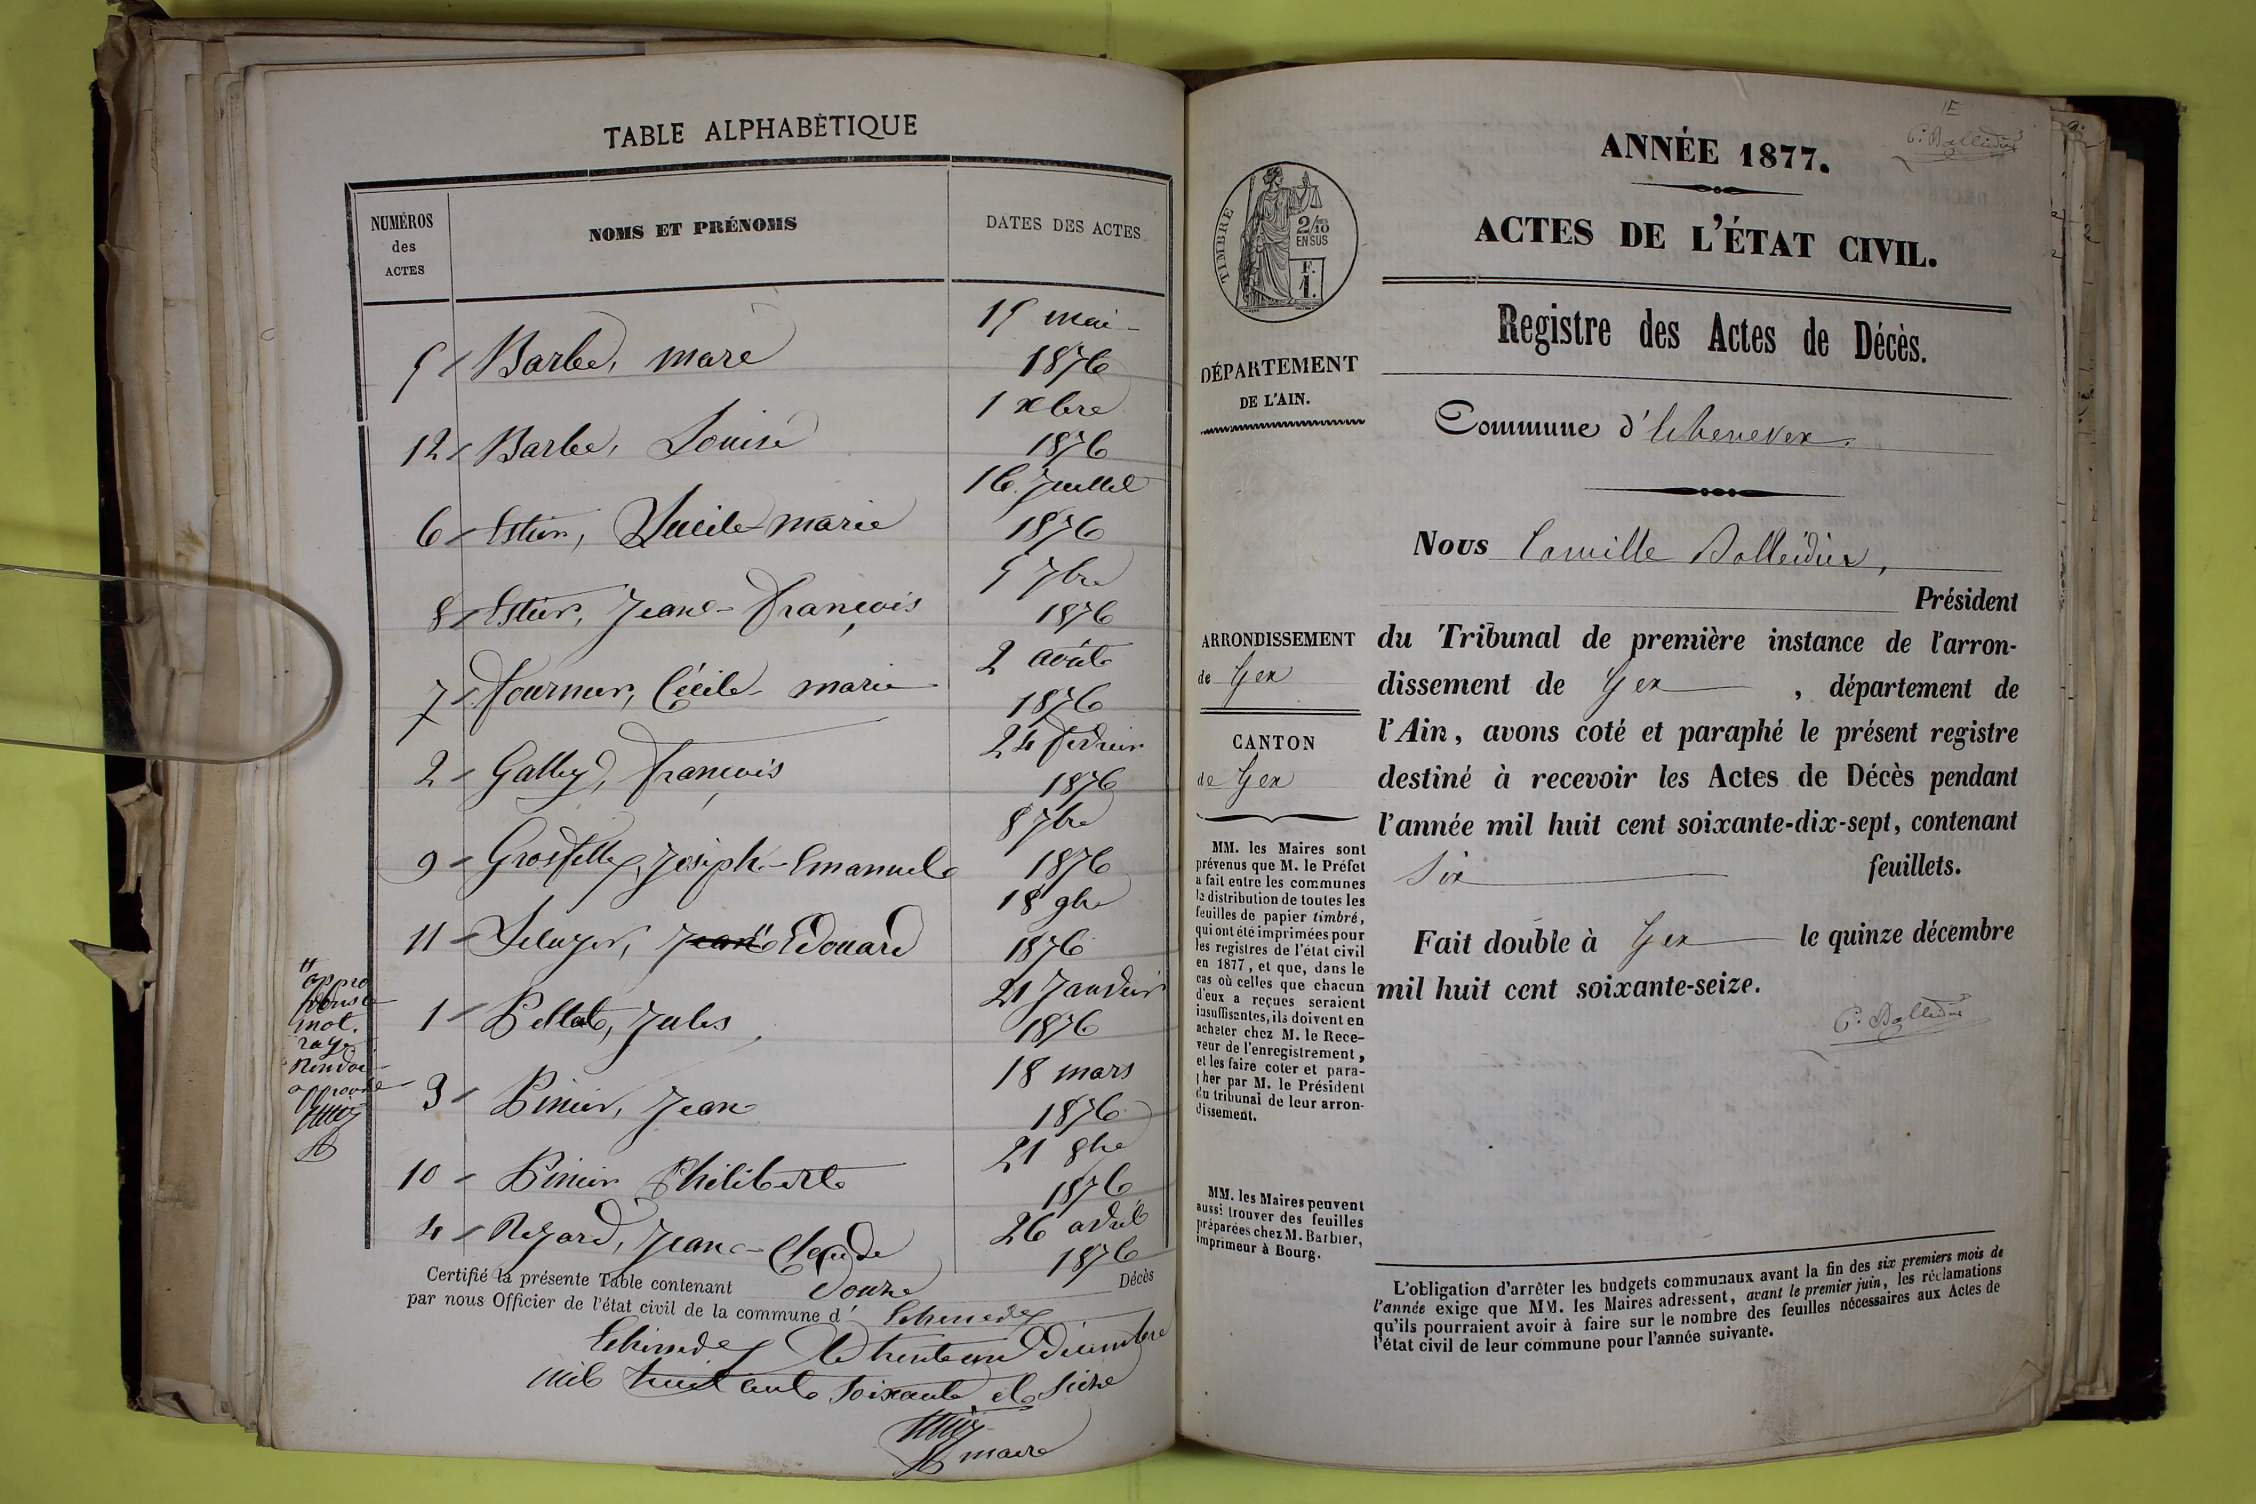 TABLE ALPHABÉTIQUE
NUMÉROS
des
ACTES
NOMS ET PRÉNOMS
DATES DES ACTES
5 Barbe, marie
15 mai
1876
12 Barbe, Louise
1 xbre
1876
6 Estier, Lucile-marie
16 Juillet
1876
8 Estier, Jean-François
5 7bre
1876
7 Fournier, Cécile-marie
2 août
1876
2 Galley, François
24 février
1876
9 Grosfilley, Joseph-Emanuel
8 7bre
1876
11 Jean " Edouard
18 9bre
1876
1 Pellet, Jules
21 Janvier
1876
3 Pinier, Jean
18 mars
1876
10 Pinier Philiberte
21 8bre
1876
4 Rezard, Jean-Claude
26 avril
1876
"
appro
mot.
rayé
Renvoi
approuvé
Certifié la présente Table contenant douze Décès
par nous Officier de l'état civil de la commune d' Echenevex
Echenevex le trente un décembre
mil huit cent soixante et seize
maire
1E
C. Balleidier
ANNÉE 1877.
ACTES DE L'ÉTAT CIVIL.
Registre des Actes de Décès.
TIMBRE
2/10
EN SUS
F.
1.
DÉPARTEMENT
DE L'AIN.
Commune d'Echenevex.
Nous Camille Balleidier,
Président
du Tribunal de première instance de l'arron-
dissement de Gex, département de
l'Ain, avons coté et paraphé le présent registre
destiné à recevoir les Actes de Décès pendant
l'année mil huit cent soixante-dix-sept, contenant
Six feuillets.
Fait double à Gex le quinze décembre
mil huit cent soixante-seize.
C. Balleidier
ARRONDISSEMENT
de Gex
CANTON
de Gex
MM. les Maires sont
prévenus que M. le Préfet
a fait entre les communes
la distribution de toutes les
feuilles de papier timbré,
qui ont été imprimées pour
les registres de l'état civil
en 1877, et que, dans le
cas où celles que chacun
d'eux a reçues seraient
insuffisantes, ils doivent en
acheter chez M. le Rece-
veur de l'enregistrement,
et les faire coter et para-
pher par M. le Président
du tribunal de leur arron-
dissement.
MM. les Maires peuvent
aussi trouver des feuilles
préparées chez M. Barbier,
imprimeur à Bourg.
L'obligation d'arrêter les budgets communaux avant la fin des six premiers mois de
l'année exige que MM. les Maires adressent, avant le premier juin, les réclamations
qu'ils pourraient avoir à faire sur le nombre des feuilles nécessaires aux Actes de
l'état civil de leur commune pour l'année suivante.